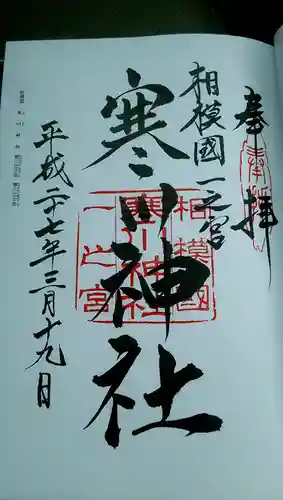 奉拝
相模國一之宮
寒川神社
平成二十七年三月十九日
奉拝
相模國
寒川神社
一之宮